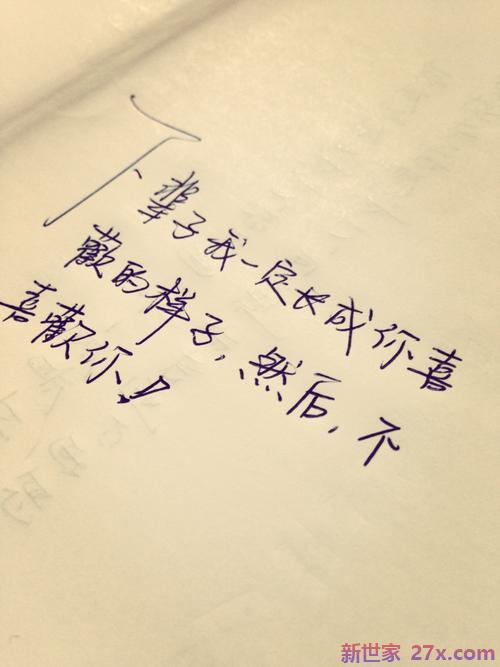 下辈子我一定长成你喜
歡的样子，然后，不
喜歡你！
新世家 27x.com